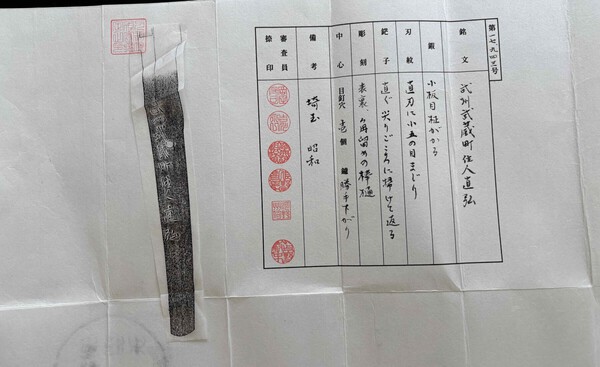 第一七九四三号
銘文 武州武蔵町住人直弘
鍛 小板目柾がかる
刃紋 直刃に小五の目まじり
鋩子 直ぐ尖りごころに掃けて返る
彫刻 表裏、角留めの棒樋
中心 目釘穴 壱個 鑢 勝手下がり
備考 埼玉 昭和
審査員
捺印